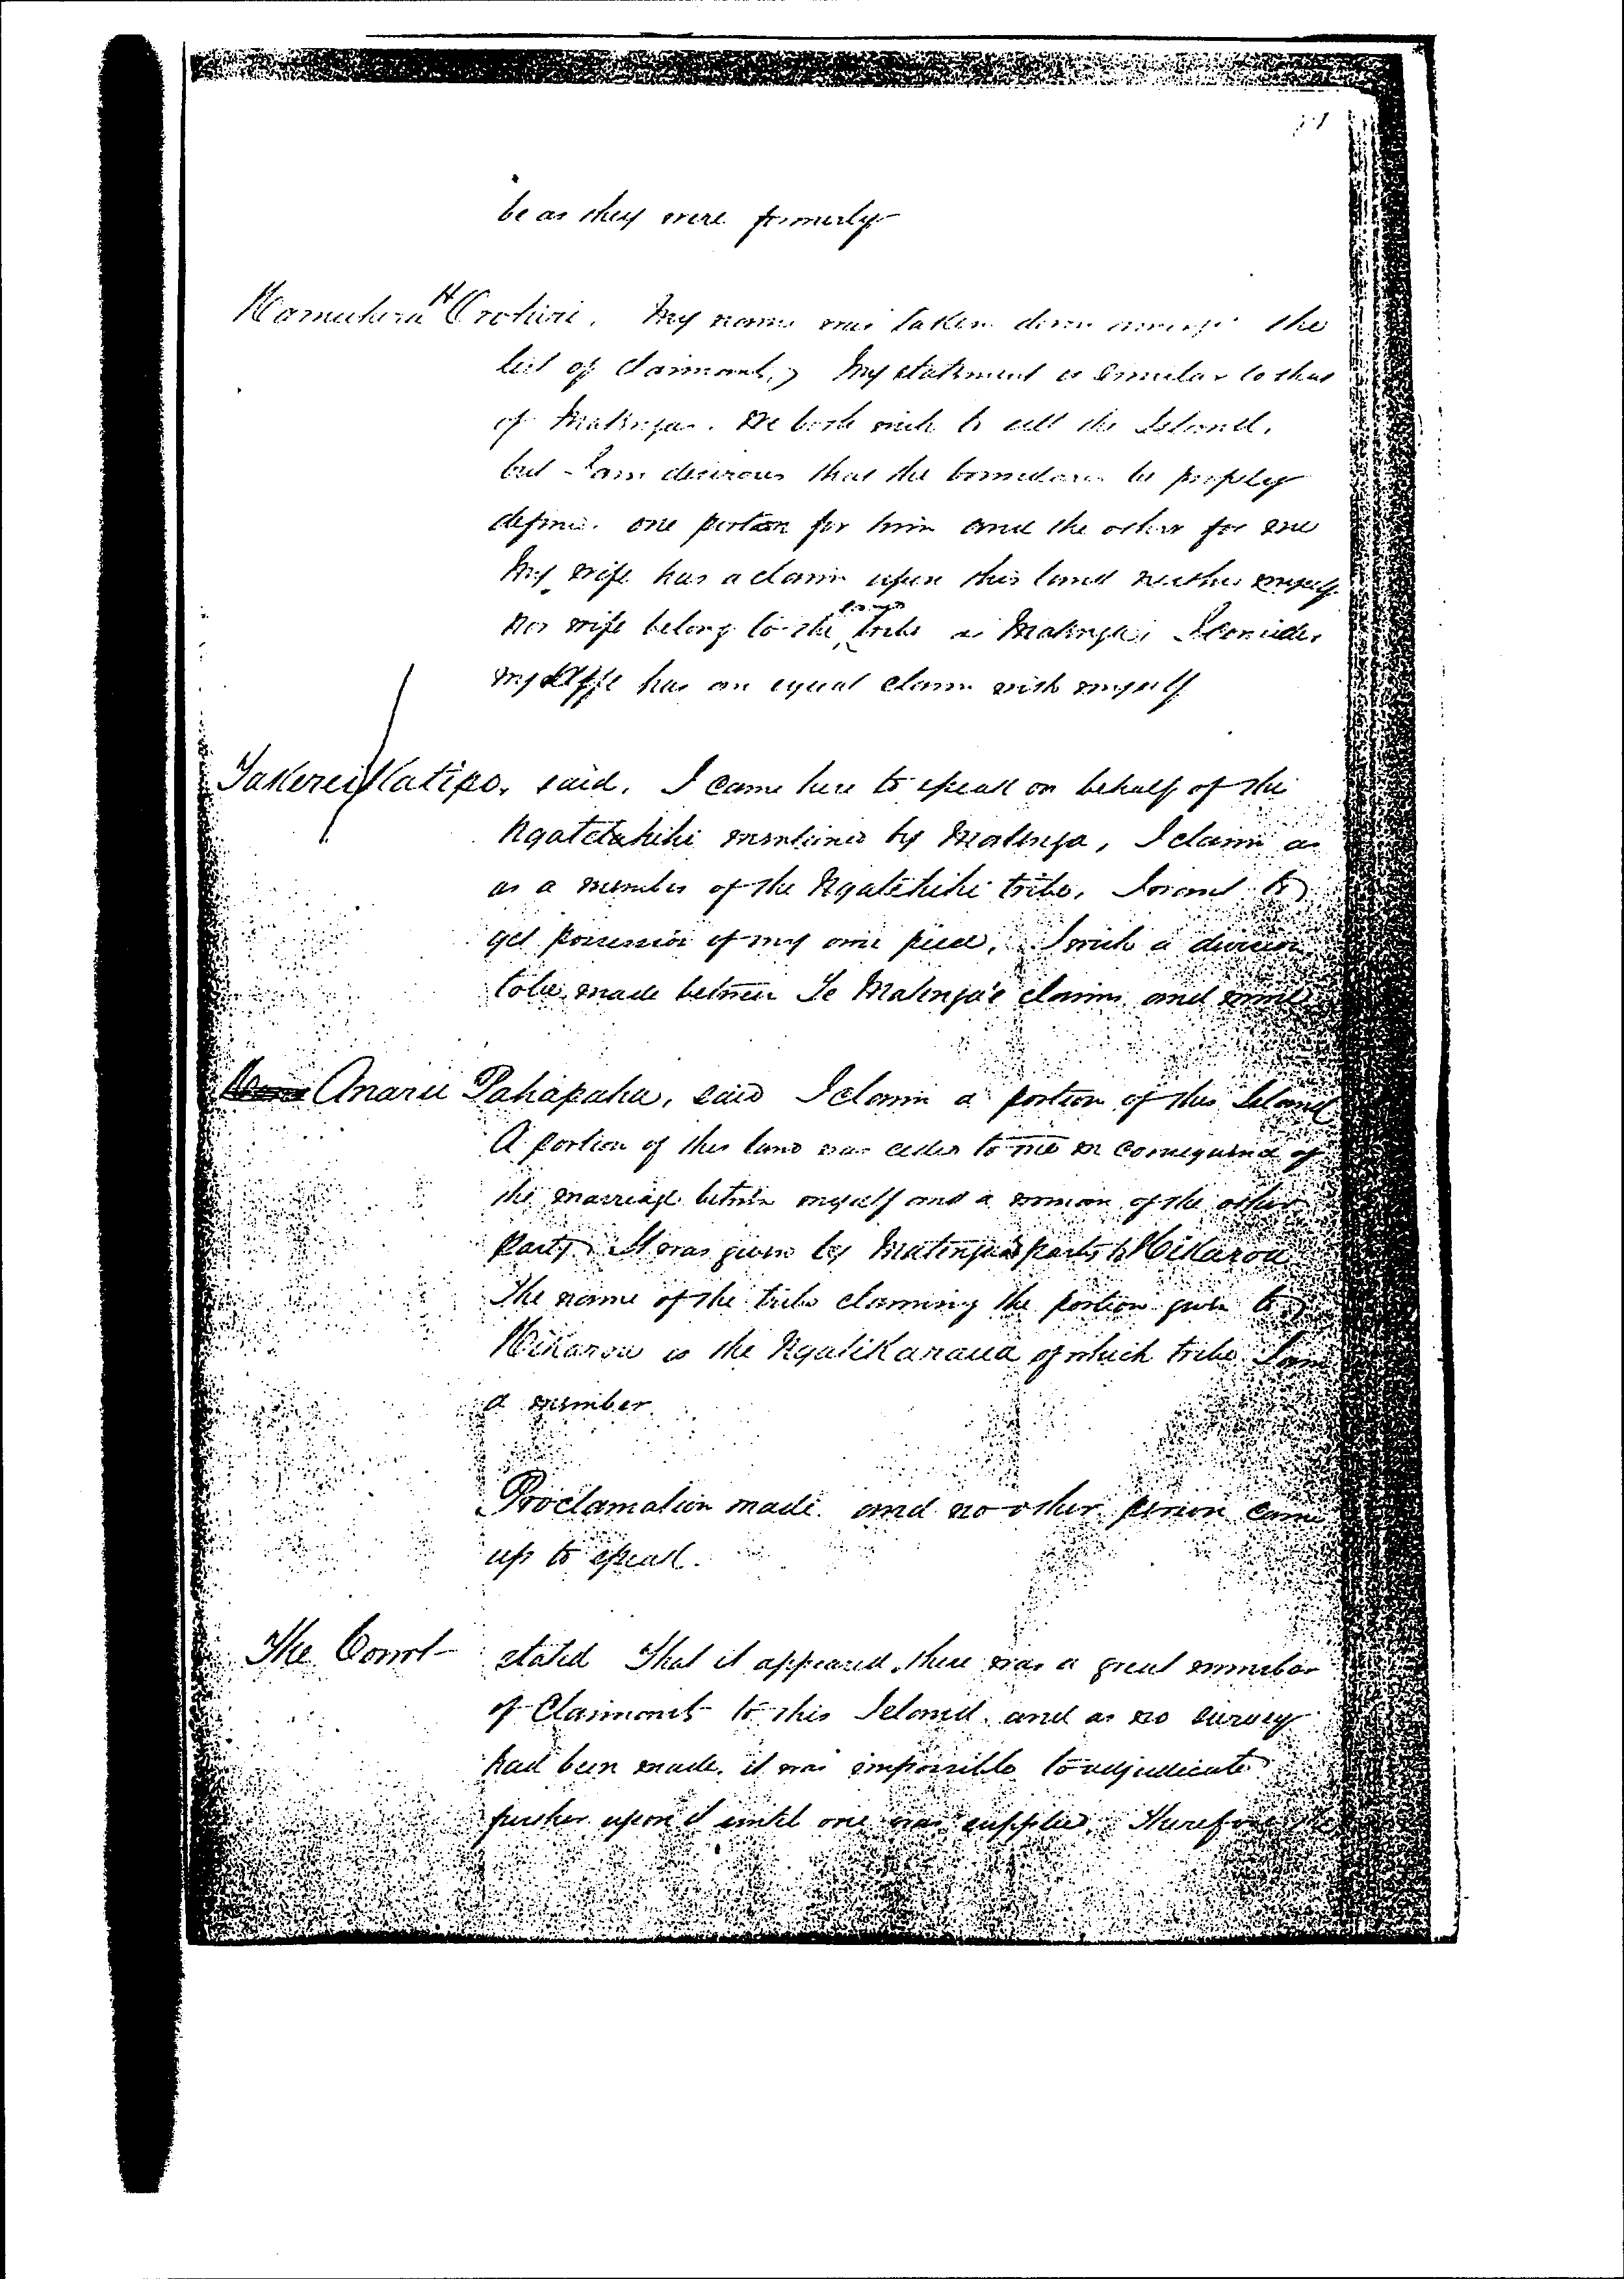 be as they were formerly
Hamuhera H Orohiri. My name was taken down amongst the
list of claimants, My statement is similar to that
of Matenga. We both wish to sell the Island,
but I am desirous that the boundaries be properly
define. one portion for him and the other for me
My wife has a claim upon this land neither myself
nor wife belong to the same tribe as Matenga; I consider
my wife has an equal claim with myself
Takerei Katipo. said. I came here to speak on behalf of the
Ngatetahihi mentioned by Matenga, I claim as
as a member of the Ngatihihi tribe, I want to
get possession of my own piece, I wish a division
to be made between Te Matenga's claim and mine
Anaru Pahapaha, said I claim a portion of this Island
A portion of this land was ceded to me in consequence of
the marriage between myself and a woman of the other
party It was given by Matenga's party to Hikarou
The name of the tribe claiming the portion given to
Hikarou is the Ngatikaraua of which tribe I am
a member
Proclamation made. and no other person came
up to speak.
The Court stated That it appeared there was a great number
of Claimants to this Island. and as no survey
had been made. it was impossible to adjudicate
further upon it until one was supplied. Therefore the